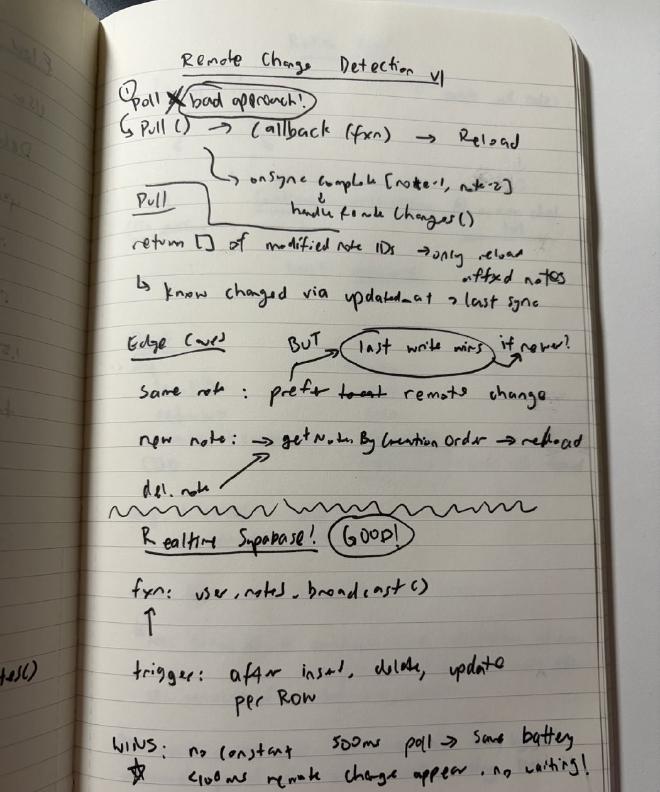 Remote Change Detection v1
① Poll X bad approach!
↳ Pull () → Callback (fxn) → Reload
↳ onSync Complete [note-1, note-2]
↓
handle Remote Changes()
Pull
return [] of modified note IDs → only reload
affxd notes
↳ know changed via updated_at > last sync
Edge Cases BUT last write wins if newer?
Same note : prefer remote change
new note: → getNotes By Creation Order → reload
del. note
Realtime Supabase! GOOD!
fxn: user_notes_broadcast()
↑
trigger: after insert, delete, update
per Row
WINS: no constant 500ms poll → save battery
☆ <100ms remote change appear. no waiting!
tes()